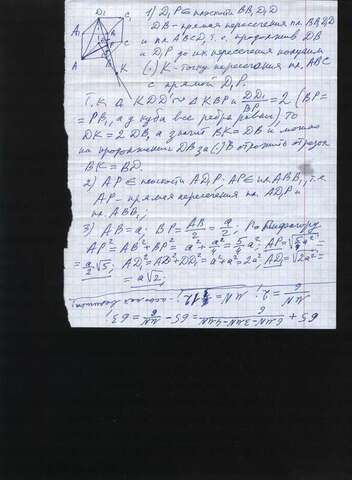 D₁
A₁
C₁
P
A
B
C
K
1) D₁P ∈ плоскости BB₁D₁D
DB - прямая пересечения пл. BB₁D₁D
и пл ABCD, т.е. продолжив DB
и D₁P до их пересечения получим
(·) K - точку пересечения пл. ABC
с прямой D₁P.
Т.к. △ KDD₁ ~ △ KBP и DD₁/BP = 2 (BP=
= PB₁, а у куба все ребра равны) то
DK = 2DB, а значит BK = DB и можно
на продолжении DB за (·)B отложить отрезок
BK = BD.
2) AP ∈ плоскости AD₁P, AP ∈ пл. ABB₁, т.е.
AP - прямая пересечения пл. AD₁P и
пл. ABB₁
3) AB = a; BP = AB/2 = a/2; По Пифагору
AP² = AB² + BP² = a² + a²/4 = 5/4 a²; AP = √5/4 a² =
= a/2 √5; AD₁² = AD² + DD₁² = a² + a² = 2a²; AD₁ = √2a² =
= a√2;